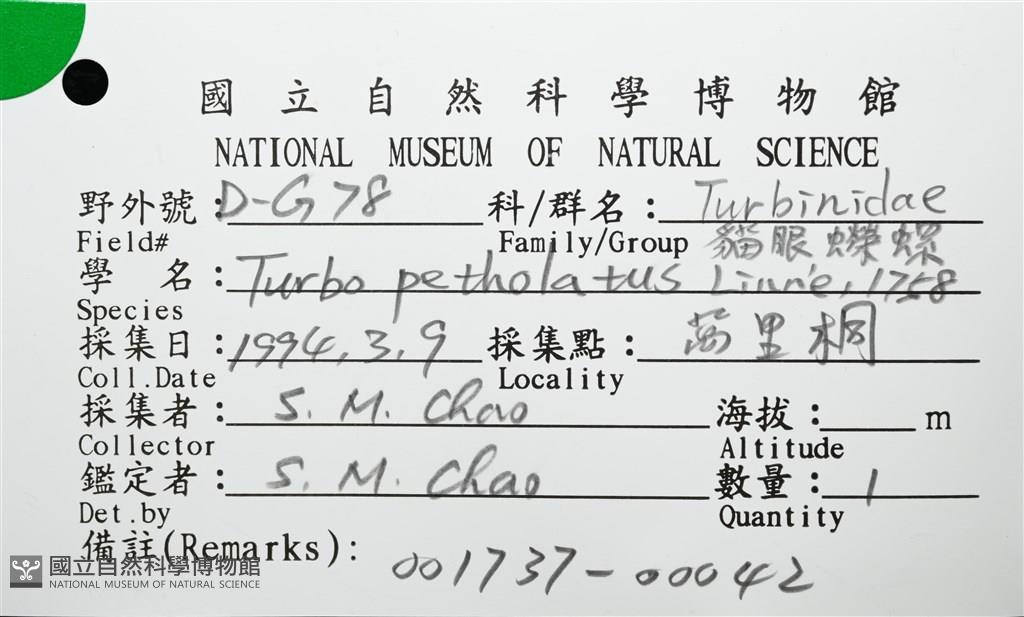 國立自然科學博物館
NATIONAL MUSEUM OF NATURAL SCIENCE
野外號：D-G78 科/群名：Turbinidae
Field# Family/Group 貓眼蠑螺
學 名：Turbo petholatus Linné, 1758
Species
採集日：1994, 3, 9 採集點：萬里桐
Coll.Date Locality
採集者：S. M. Chao 海拔： m
Collector Altitude
鑑定者：S. M. Chao 數量：1
Det.by Quantity
備註(Remarks): 001737-00042
國立自然科學博物館
NATIONAL MUSEUM OF NATURAL SCIENCE